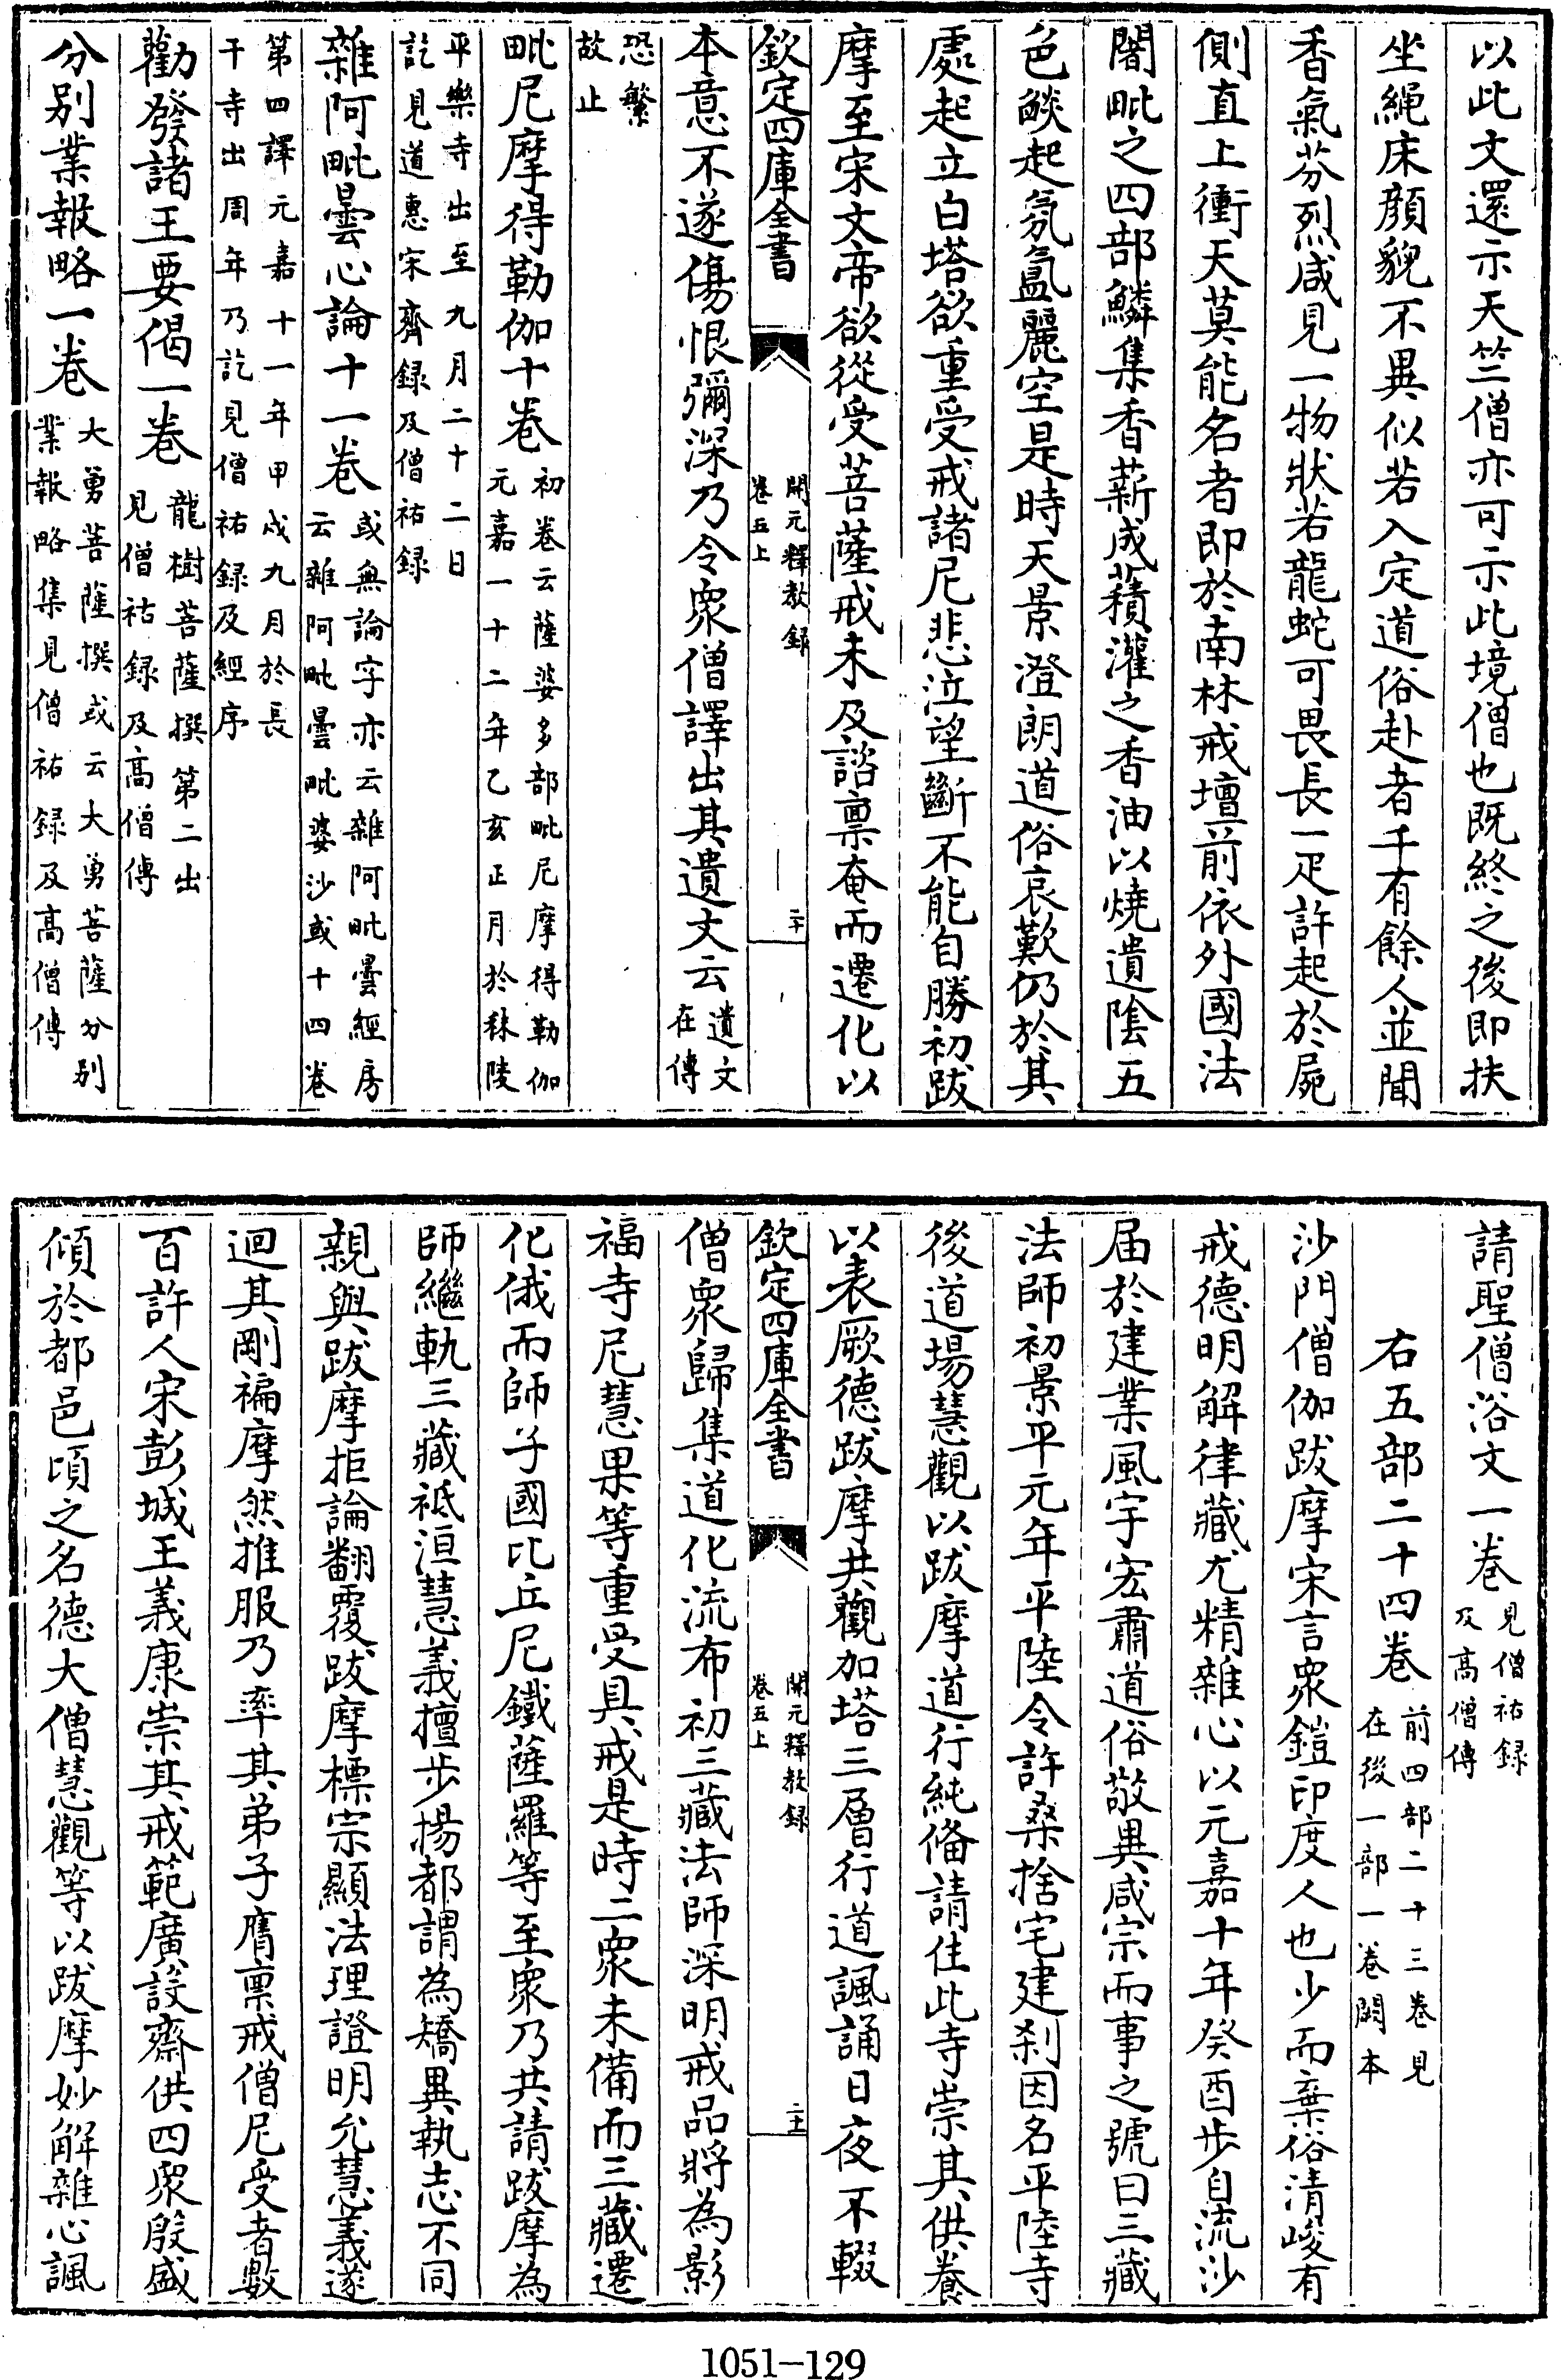 以此文還示天竺僧亦可示此境僧也既終之後即扶
坐繩床顔貌不異似若入定道俗赴者千有餘人並聞
香氣芬烈咸見一物狀若龍蛇可畏長一疋許起於屍
側直上衝天莫能名者即於南林戒壇前依外國法
闍毗之四部鱗集香薪成積灌之香油以燒遺陰五
色燄起氛氲麗空是時天景澄朗道俗哀歎仍於其
處起立白塔欲重受戒諸尼悲泣望斷不能自勝初跋
摩至宋文帝欲從受菩薩戒未及諮稟奄而遷化以
欽定四庫全書
開元釋教録
卷五上
二十
本意不遂傷恨彌深乃令衆僧譯出其遺文云遺文
在傳
恐繁
故止
毗尼摩得勒伽十卷初卷云薩婆多部毗尼摩得勒伽
元嘉一十二年乙亥正月於秣陵
平樂寺出至九月二十二日
訖見道惠宋齊録及僧祐録
雜阿毗曇心論十一卷或無論字亦云雜阿毗曇經房
云雜阿毗曇毗婆沙或十四卷
第四譯元嘉十一年甲戌九月於長
干寺出周年乃訖見僧祐録及經序
勸發諸王要偈一卷龍樹菩薩撰第二出
見僧祐録及高僧傳
分别業報略一卷大勇菩薩撰或云大勇菩薩分别
業報略集見僧祐録及高僧傳
請聖僧浴文一卷見僧祐録
及高僧傳
右五部二十四卷前四部二十三卷見
在後一部一卷闕本
沙門僧伽跋摩宋言衆鎧印度人也少而棄俗清峻有
戒德明解律藏尤精雜心以元嘉十年癸酉步自流沙
届於建業風宇宏肅道俗敬異咸宗而事之號曰三藏
法師初景平元年平陸令許桑捨宅建刹因名平陸寺
後道場慧觀以跋摩道行純俻請住此寺崇其供養
以表厥德跋摩共觀加塔三層行道諷誦日夜不輟
欽定四庫全書
開元釋教録
卷五上
二十一
僧衆歸集道化流布初三藏法師深明戒品將為影
福寺尼慧果等重受具戒是時二衆未備而三藏遷
化俄而師子國比丘尼鐵薩羅等至衆乃共請跋摩為
師繼軌三藏祗洹慧義擅步揚都謂為矯異執志不同
親與跋摩拒論翻覆跋摩標宗顯法理證明允慧義遂
迴其剛褊摩然推服乃率其弟子膺稟戒僧尼受者數
百許人宋彭城王義康崇其戒範廣設齋供四衆殷盛
傾於都邑頃之名德大僧慧觀等以跋摩妙解雜心諷
1051-129